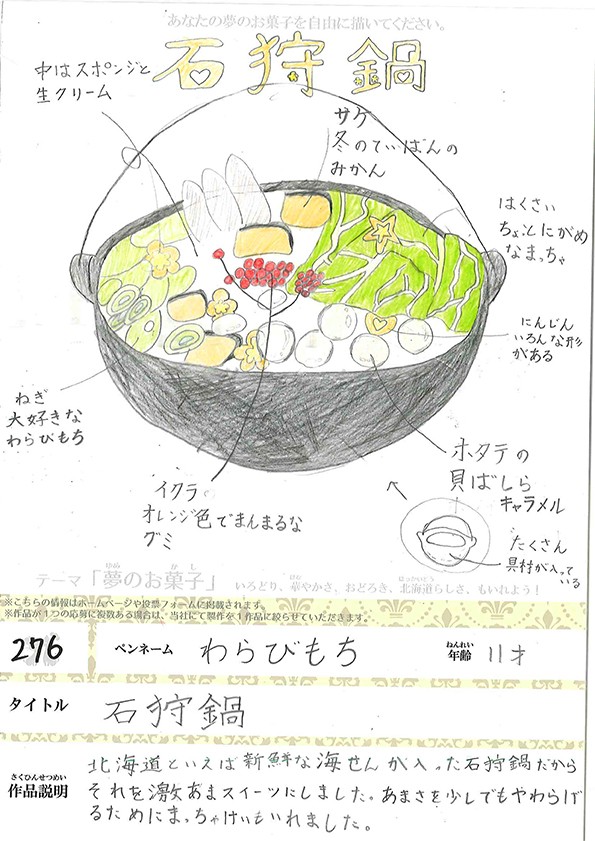 あなたの夢のお菓子を自由に描いてください。
石狩鍋
中はスポンジと
生クリーム
サケ
冬のていばんの
みかん
はくさい
ちょとにがめ
なまっちゃ
にんじん
いろんな形
がある
ねぎ
大好きな
わらびもち
イクラ
オレンジ色でまんまるな
グミ
ホタテの
貝ばしら
キャラメル
たくさん
具材が入って
いる
テーマ「夢のお菓子」 いろどり、華やかさ、おどろき、北海道らしさ、もいれよう!
ゆめ かし はな ほっかいどう
※こちらの情報はホームページや投票フォームに掲載されます。
※作品が1つの応募に複数ある場合は、当社にて製作を1作品に絞らせていただきます。
276 ペンネーム わらびもち 年齢 11才
ねんれい
タイトル 石狩鍋
さくひんせつめい
作品説明
北海道といえば新鮮な海せんが入った石狩鍋だから
それを激あまスイーツにしました。あまさを少しでもやわらげ
るためにまっちゃけいもいれました。